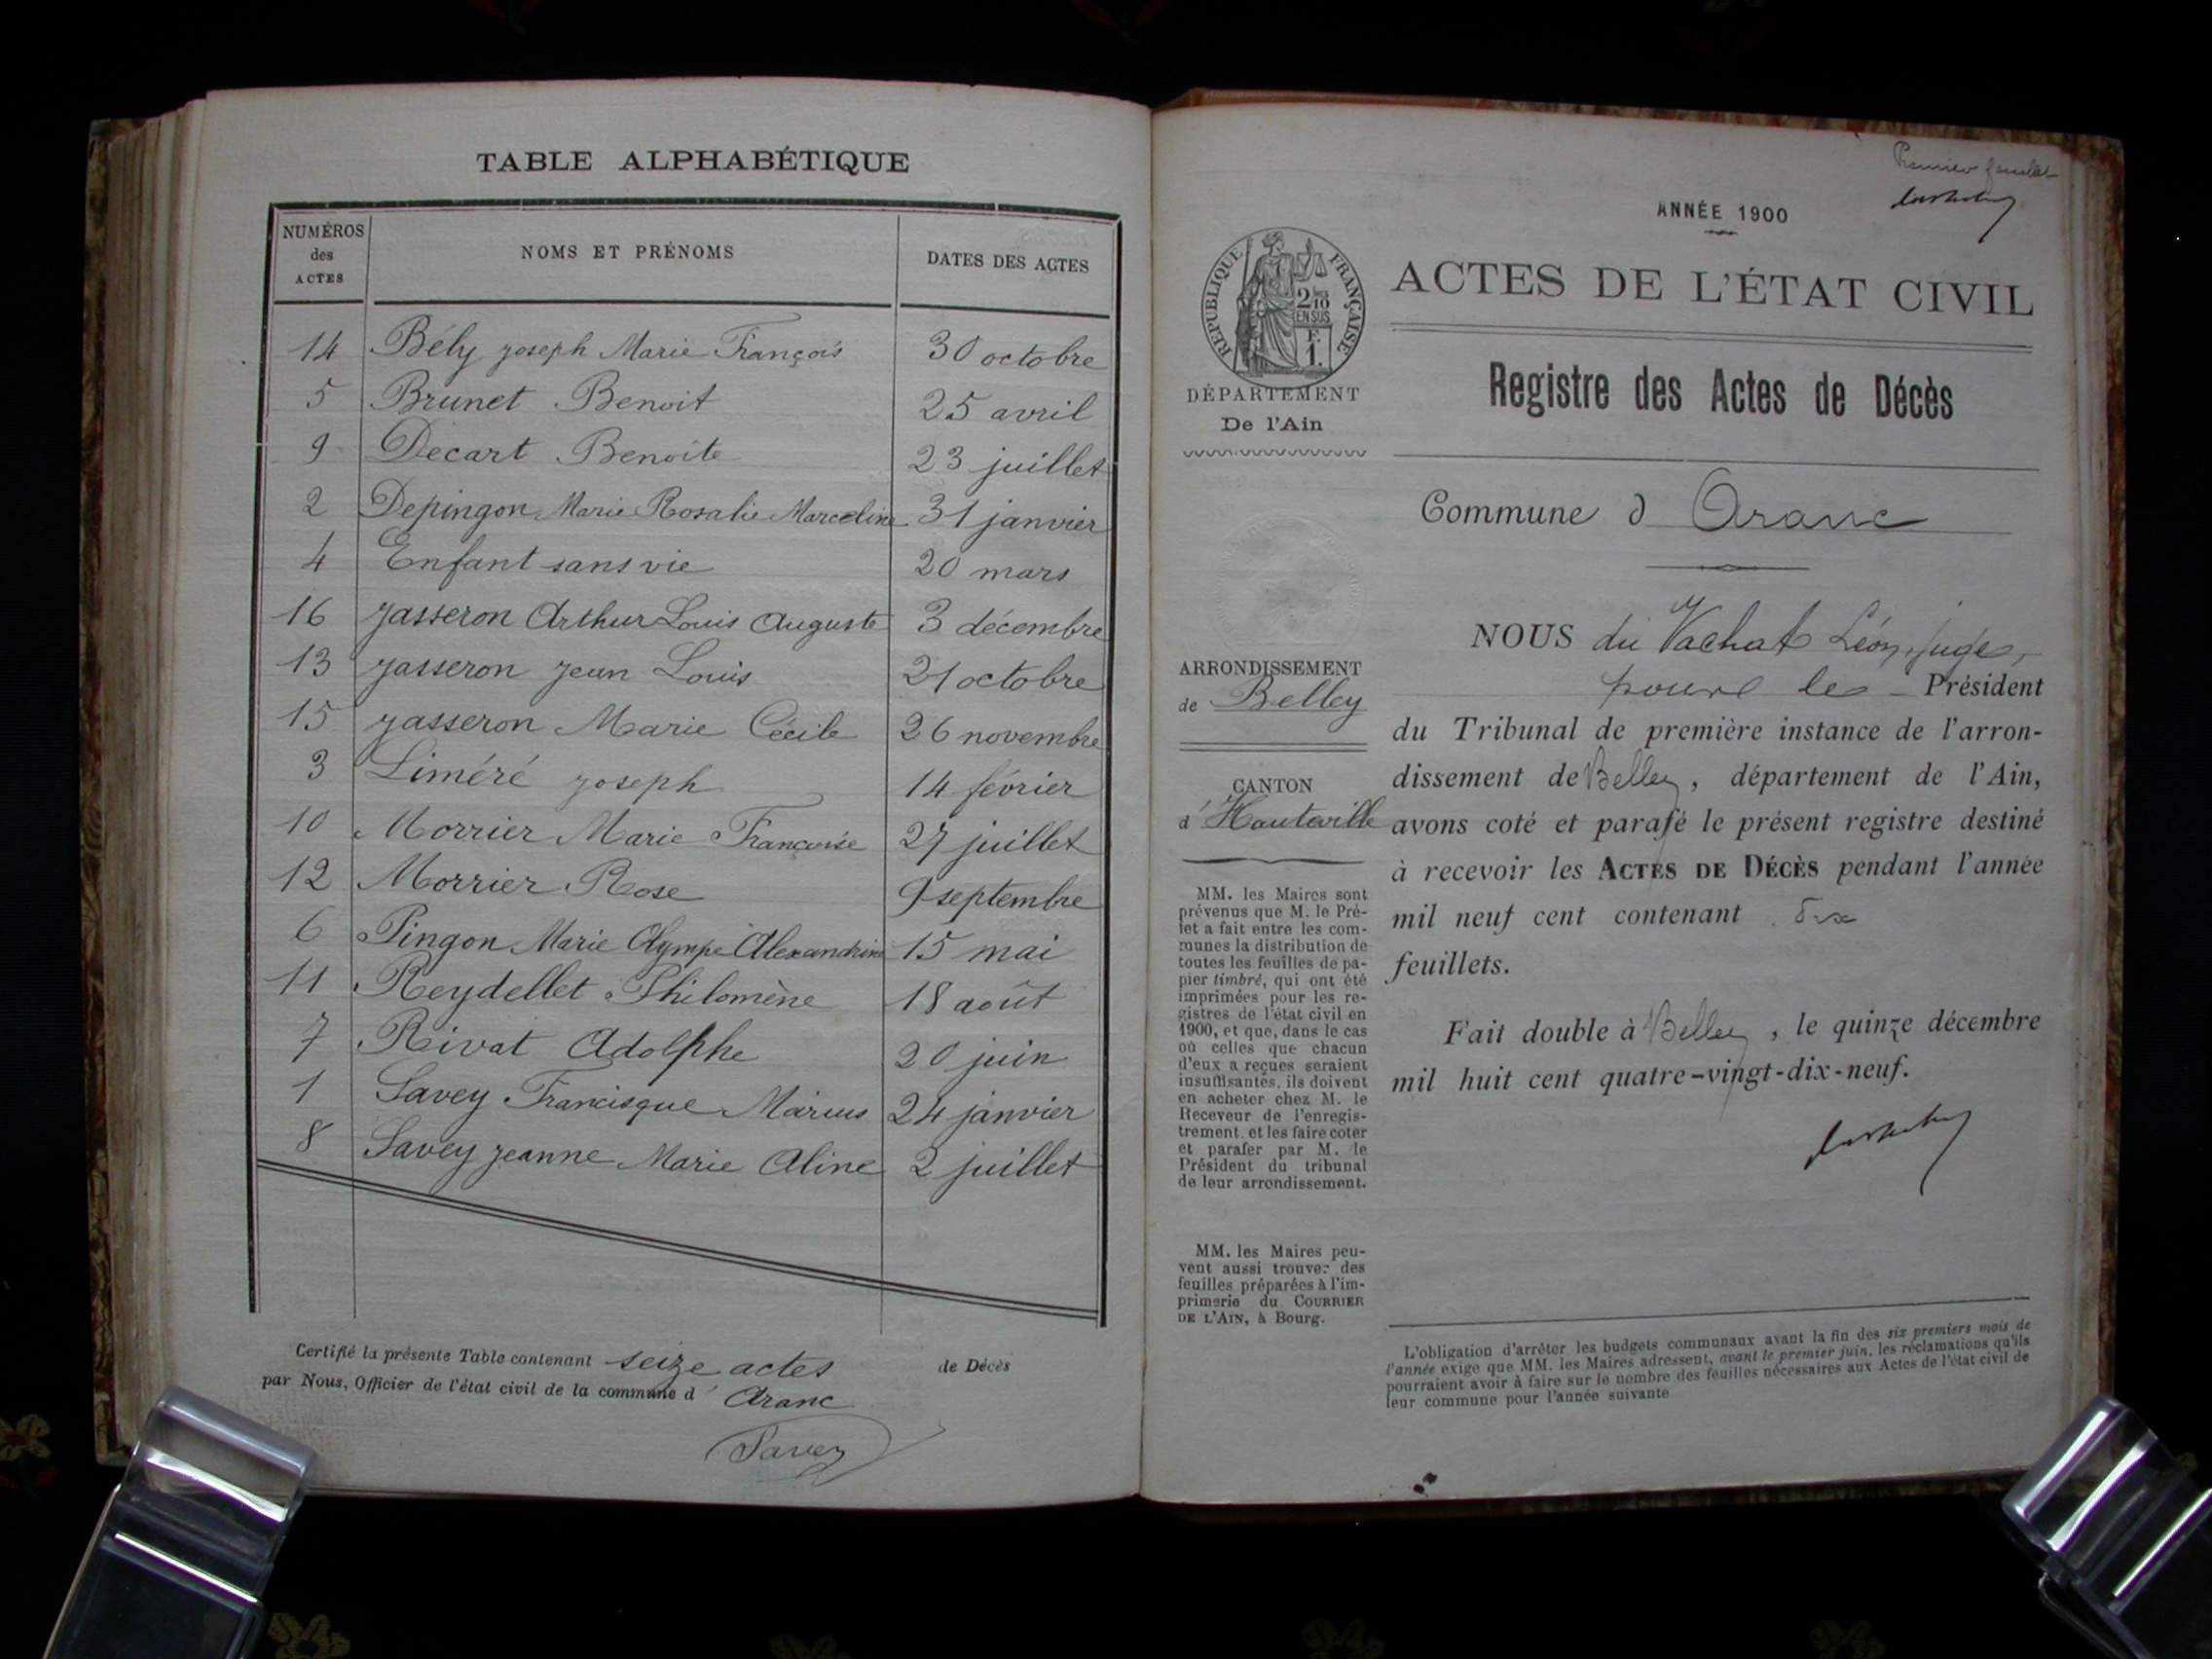 TABLE ALPHABÉTIQUE
NUMÉROS
des
ACTES
NOMS ET PRÉNOMS
DATES DES ACTES
14 Bély Joseph Marie François 30 octobre
5 Brunet Benoit 25 avril
9 Décart Benoite 23 juillet
2 Depingon Marie Rosalie Marceline 31 janvier
4 Enfant sans vie 20 mars
16 Jasseron Arthur Louis Auguste 3 décembre
13 Jasseron Jean Louis 21 octobre
15 Jasseron Marie Cécile 26 novembre
3 Liméré Joseph 14 février
10 Morrier Marie Françoise 27 juillet
12 Morrier Rose 9 septembre
6 Pingon Marie Olympe Alexandrine 15 mai
11 Reydellet Philomène 18 août
7 Rivat Adolphe 20 juin
1 Savey Francisque Marius 24 janvier
8 Savey Jeanne Marie Aline 2 juillet
Certifié la présente Table contenant seize actes de Décès
par Nous, Officier de l'état civil de la commune d' Aranc
Savey
Premier feuillet
ANNÉE 1900
RÉPUBLIQUE FRANÇAISE
2/10
EN SUS
F.
1.
ACTES DE L'ÉTAT CIVIL
DÉPARTEMENT
De l'Ain
Registre des Actes de Décès
Commune d Aranc
ARRONDISSEMENT
de Belley
CANTON
d' Hauteville
MM. les Maires sont
prévenus que M. le Pré-
fet a fait entre les com-
munes la distribution de
toutes les feuilles de pa-
pier timbré, qui ont été
imprimées pour les re-
gistres de l'état civil en
1900, et que, dans le cas
où celles que chacun
d'eux a reçues seraient
insuffisantes, ils doivent
en acheter chez M. le
Receveur de l'enregis-
trement, et les faire coter
et parafer par M. le
Président du tribunal
de leur arrondissement.
MM. les Maires peu-
vent aussi trouver des
feuilles préparées à l'im-
primerie du COURRIER
DE L'AIN, à Bourg.
NOUS du Vachat Léon, juge,
pour le Président
du Tribunal de première instance de l'arron-
dissement de Belley, département de l'Ain,
avons coté et parafé le présent registre destiné
à recevoir les ACTES DE DÉCÈS pendant l'année
mil neuf cent contenant dix
feuillets.
Fait double à Belley, le quinze décembre
mil huit cent quatre-vingt-dix-neuf.
L'obligation d'arrêter les budgets communaux avant la fin des six premiers mois de
l'année exige que MM. les Maires adressent, avant le premier juin, les réclamations qu'ils
pourraient avoir à faire sur le nombre des feuilles nécessaires aux Actes de l'état civil de
leur commune pour l'année suivante